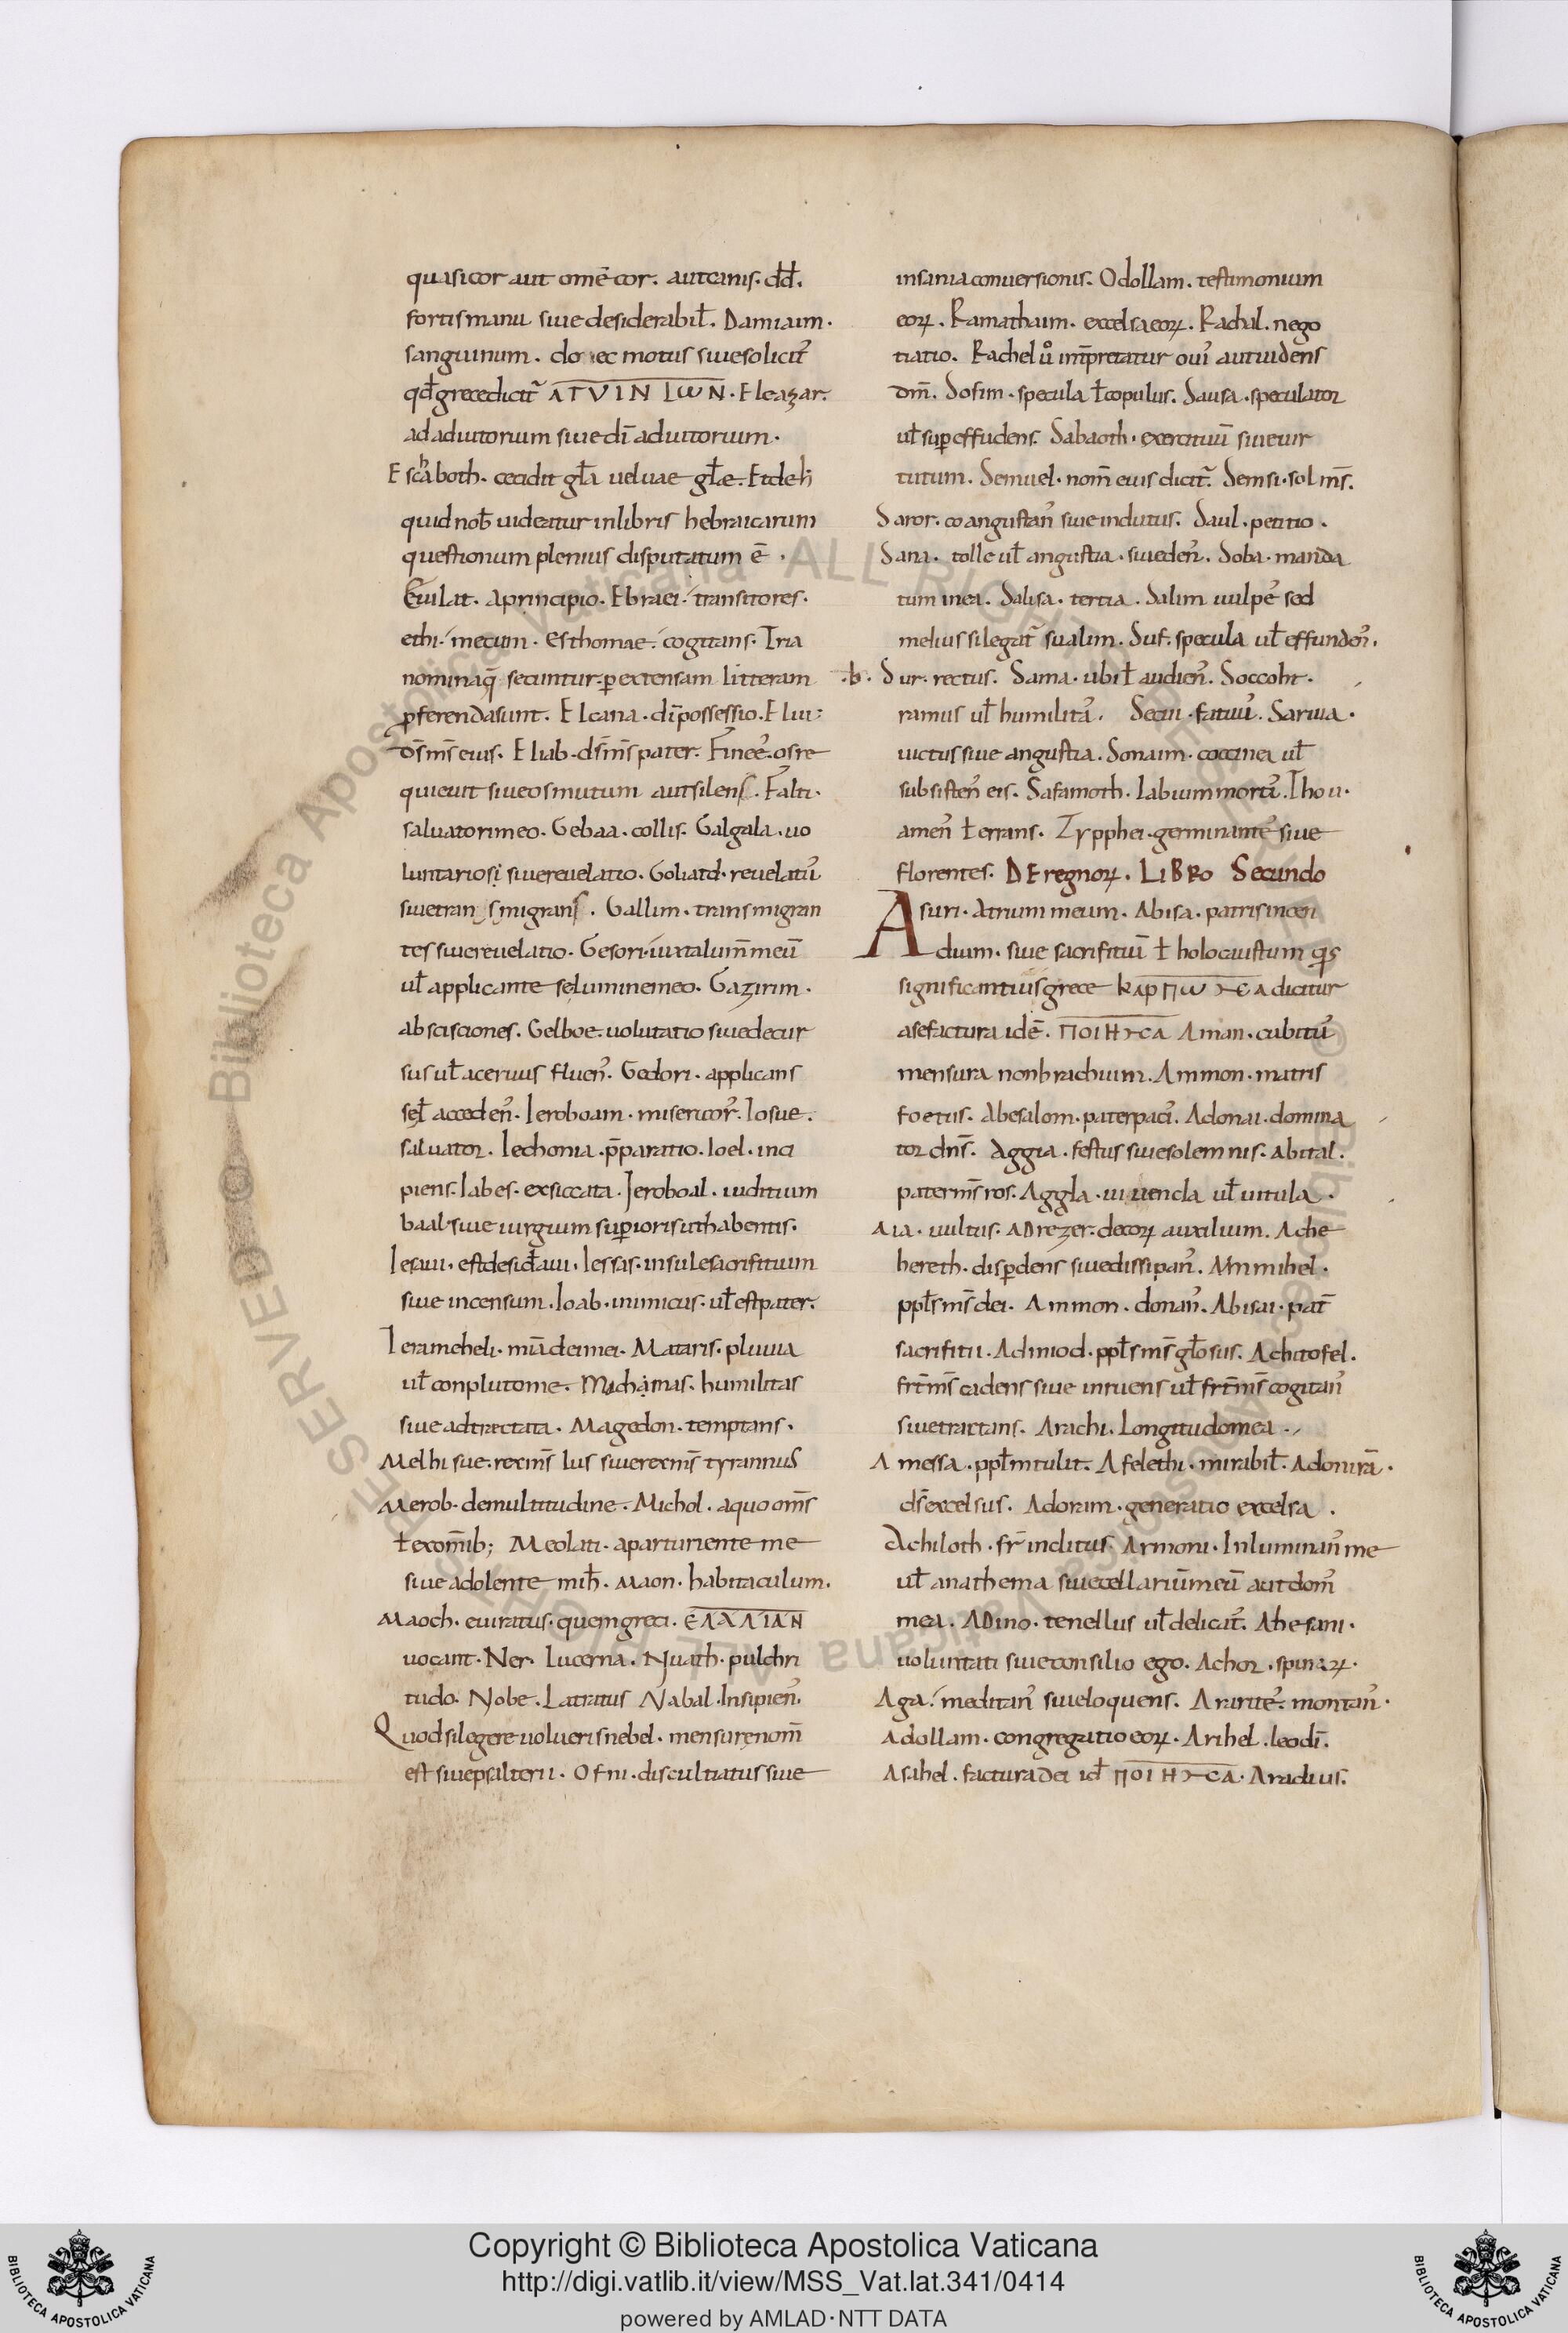 quasi cor aut omē cor. aut canis. dd̄.
fortis manu siue desiderabil̄. Damiaim.
sanguinum. do ec motus siue solicit᷒
qđ grece dicit᷒ ΛΓVIN IωN. Eleazar.
ad adiutorium siue dī adiutorium.
Escħaboth. cecidit gl̄a uel uae gl̄e. Et de h
quid nob̄ uideatur in libris hebraicarum
questionum plenius disputatum ē.
Euilat. a principio. Ebraei. transitores.
ethi. mecum. Esthomae. cogitans. Tria
nomina q̄ secuntur. ꝑ extensam litteram
ꝓferenda sunt. Elcana. dī possessio. Eliu:
d̄s m̄s eius. Eliab. d̄s m̄s pater. Fineē. os re
quieuit siue os mutum aut silens. Falti.
saluatori meo. Gebaa. collis. Galgala. uo
luntario si siue reuelatio. Goliatd. reuelatū
siue transmigrans. Gallim. transmigran
tes siue reuelatio. Gesori. iuxta lum̄ meū
ul̄ applicante se lumine meo. Gazirim.
abscisciones. Gelboe. uolutatio siue decur
sus ul̄ aceruus fluen᷒. Gedori. applicans
se ul̄ acceden᷒. Ieroboam. misericor᷒. Iosue.
saluator. Iechonia. p̄paratio. Ioel. inci
piens. Iabes. exsiccata. Ieroboal. iuditium
baal siue iurgium suꝑioris uth abentis.
Iesaui. est desid̄aui. Iessas. insule sacrifitium
siue incensum. Ioab. inimicus. ul̄ est pater.
Ierameheli. mīa dei mei. Mataris. pluuia
ul̄ conpluto me. Machamas. humilitas
siue adtrectata. Magedon. temptans.
Melhi sue. rex m̄s Ius siue rex m̄s tyrannus
Merob. de multitudine. Michol. a quo om̄s
ł ex om̄ib; Meolati. a parturiente me
siue adolente mih̄. Maon. habitaculum.
Maoch. euiratus. quem greci. ЄΛΛΛΙΑΝ
uocant. Ner. Lucerna. Nuath. pulchri
tudo. Nobe. Latratus Nabal. Insipien᷒.
Quod si legere uolueris nebel. mensure nom̄
est siue psalterii. Ofni. discultiatus siue
insania conuersionis. Odollam. testimonium
eoꝝ. Ramathaim. excelsa eoꝝ. Rachal. nego
tiatio. Rachel ů int̄pretatur oui᷒ aut uidens
dm̄. Sofim. specula ł copulus. Sausa. speculator
ul̄ suꝑ effudens. Sabaoth. exercituū siue uir
tutum. Semuel. nom̄ eius dicit᷒. Semsi. sol m̄s.
Saror. coangustan᷒ siue indutus. Saul. petitio.
Sana. tolle ul̄ angustia. siue den᷒. Soba. manda
tum in ea. Salisa. tertia. Salim uulpe᷒ sed
melius si legat᷒ sualim. Suf. specula ul̄ effunden᷒.
.b. Sur. rectus. Sama. ubi ł audien᷒. Soccoht.
ramus ul̄ humilita᷒. Secui. fatuū. Saruia.
uictus siue angustia. Sonaim. coccinea ul̄
subsisten᷒ eis. Safamoth. labium morti᷒. Thou.
amen᷒ ł errans. Zypphei. germinante᷒ siue
florentes. DE regnoꝝ. LIBRO Secundo
Asuri. Atrium meum. Abisa. patris incen
dium. siue sacrifitiū ł holocaustum q̄s
significantius grece ΚΑΡΠω CΕΑ dicitur
ase factura idē. ΠΟΙΗ CΑ Aman. cubitū
mensura non brachium. Ammon. matris
foetus. Abesalom. pater paci᷒. Adonai. domina
tor dn̄s. Aggia. festus siue solemnis. Abital.
pater m̄s ros. Aggla. uiuencla ul̄ uitula.
Aia. uultus. Adrezer. decoꝝ auxilium. Ache
hereth. disꝑdens siue dissipan᷒. Ammihel.
ppl̄s m̄s dei. Ammon. donan᷒. Abisai. pat̄
sacrifitii. Admiod. ppl̄s m̄s gl̄osus. Achitofel.
fr̄ m̄s cadens siue inruens ul̄ fr̄ m̄s cogitan᷒
siue tractans. Arachi. Longitudo mea.
Amessa. ppl̄m tulit. Afelethi. mirabil̄. Adonirā.
dn̄s excelsus. Adoram. generatio excelsa.
Achiloth. fr̄ inclitus. Armoni. Inluminan᷒ me
ul̄ anathema siue cellariū meū aut dom᷒
mea. Adino. tenellus ul̄ delicat᷒. Ahesani.
uoluntati siue consilio ego. Achor. spinaꝝ.
Aga. meditan᷒ siue loquens. Ararite᷒. montan᷒.
Adollam. congregatio eoꝝ. Arihel. leo dī.
Asahel. factura dei id̄ ΠΟΙΗ CΑ. Aradius.
Copyright © Biblioteca Apostolica Vaticana
http://digi.vatlib.it/view/MSS_Vat.lat.341/0414
powered by AMLAD·NTT DATA